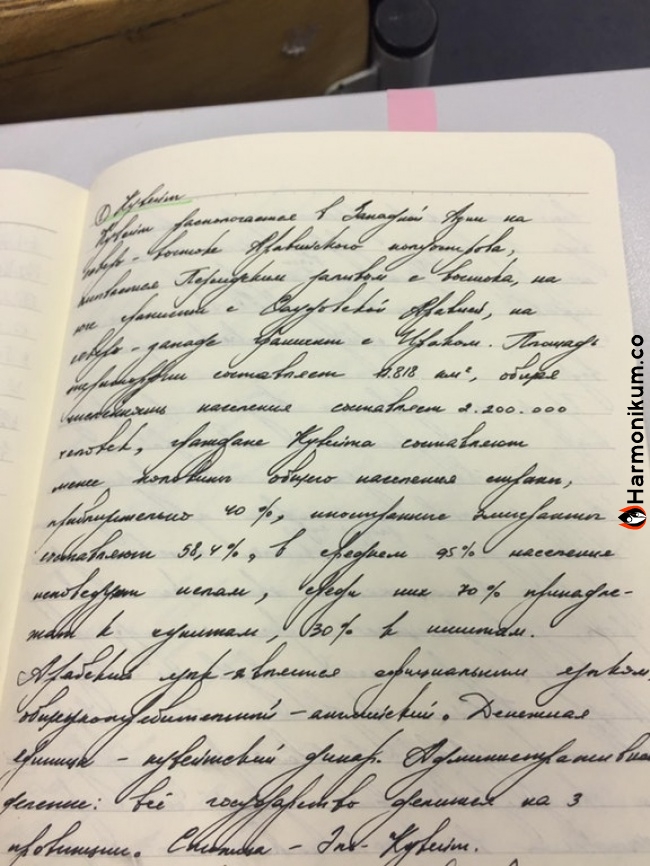 ① Кувейт
Кувейт располагается в Западной Азии на
северо-востоке Аравийского полуострова,
омывается Персидским заливом с востока, на
юге граничит с Саудовской Аравией, на
северо-западе граничит с Ираком. Площадь
территории составляет 17.818 км², общая
численность населения составляет 2.200.000
человек, граждане Кувейта составляют
менее половины общего населения страны,
приблизительно 40%, иностранные эмигранты
составляют 58,4%, в среднем 95% населения
исповедуют ислам, среди них 70% принадле-
жат к суннитам, 30% к шиитам.
Арабский язык является официальным языком,
общеупотребительной – английский. Денежная
единица – кувейтский динар. Административное
деление: всё государство делится на 3
провинции. Столица – Эль-Кувейт.
Harmonikum.co